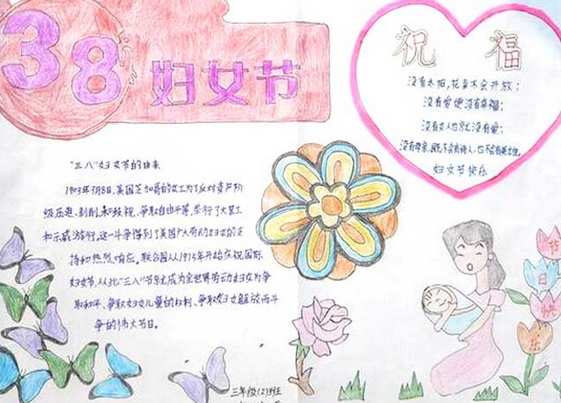 38妇女节
"三八"妇女节的由来
1909年3月8日,美国芝加哥的女工为了反对资产阶
级压迫、剥削和歧视,争取自由平等,举行了大罢工
和示威游行,这一斗争得到了美国广大劳动妇女的支
持和热烈响应。联合国从1975年开始庆祝国际
妇女节,从此"三八"节就成为全世界劳动妇女为争
取和平、争取妇女儿童的权利、争取妇女解放而斗
争的伟大节日。
祝福
没有太阳,花朵不会开放;
没有爱便没有幸福;
没有女人也就没有爱;
没有母亲,既不会有诗人,也不会有英雄。
妇女节快乐
节
日
快
乐
三年级(2)班